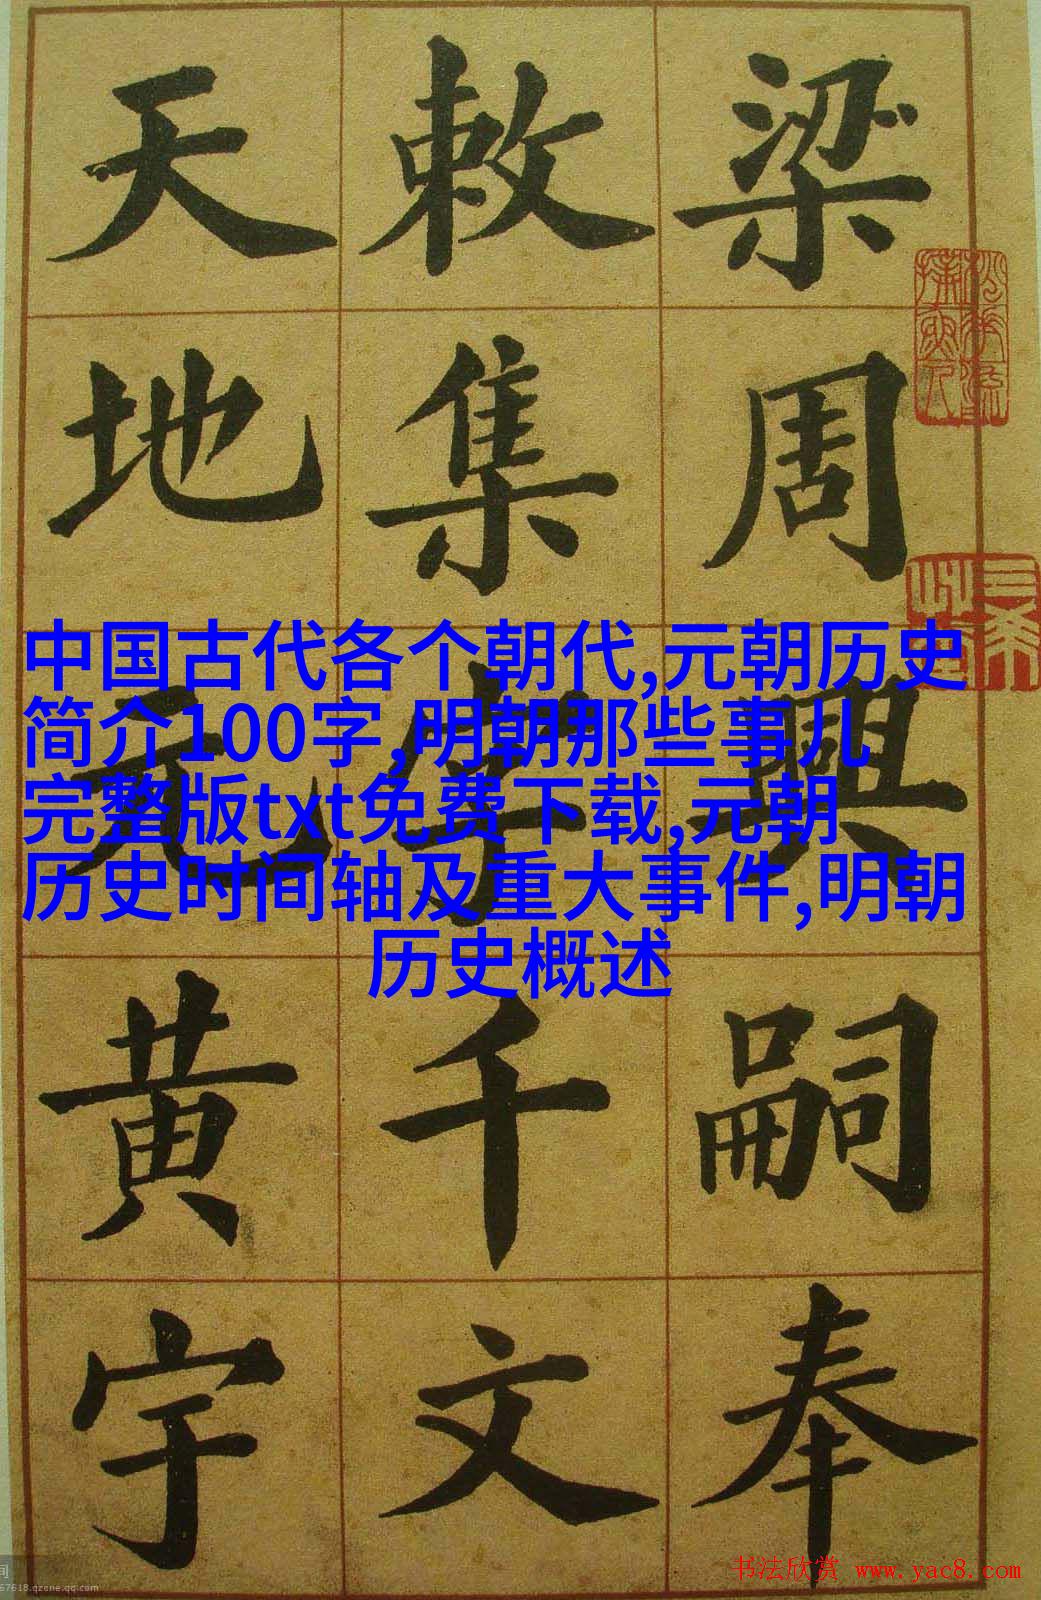 梁周興嗣奉
敕集字千文
天地元黄宇
中国古代各个朝代,元朝历史
简介100字,明朝那些事儿
完整版txt免费下载,元朝
历史时间轴及重大事件,明朝
历史概述
书法欣赏 www.yac8.com
67618.qzone.qq.com